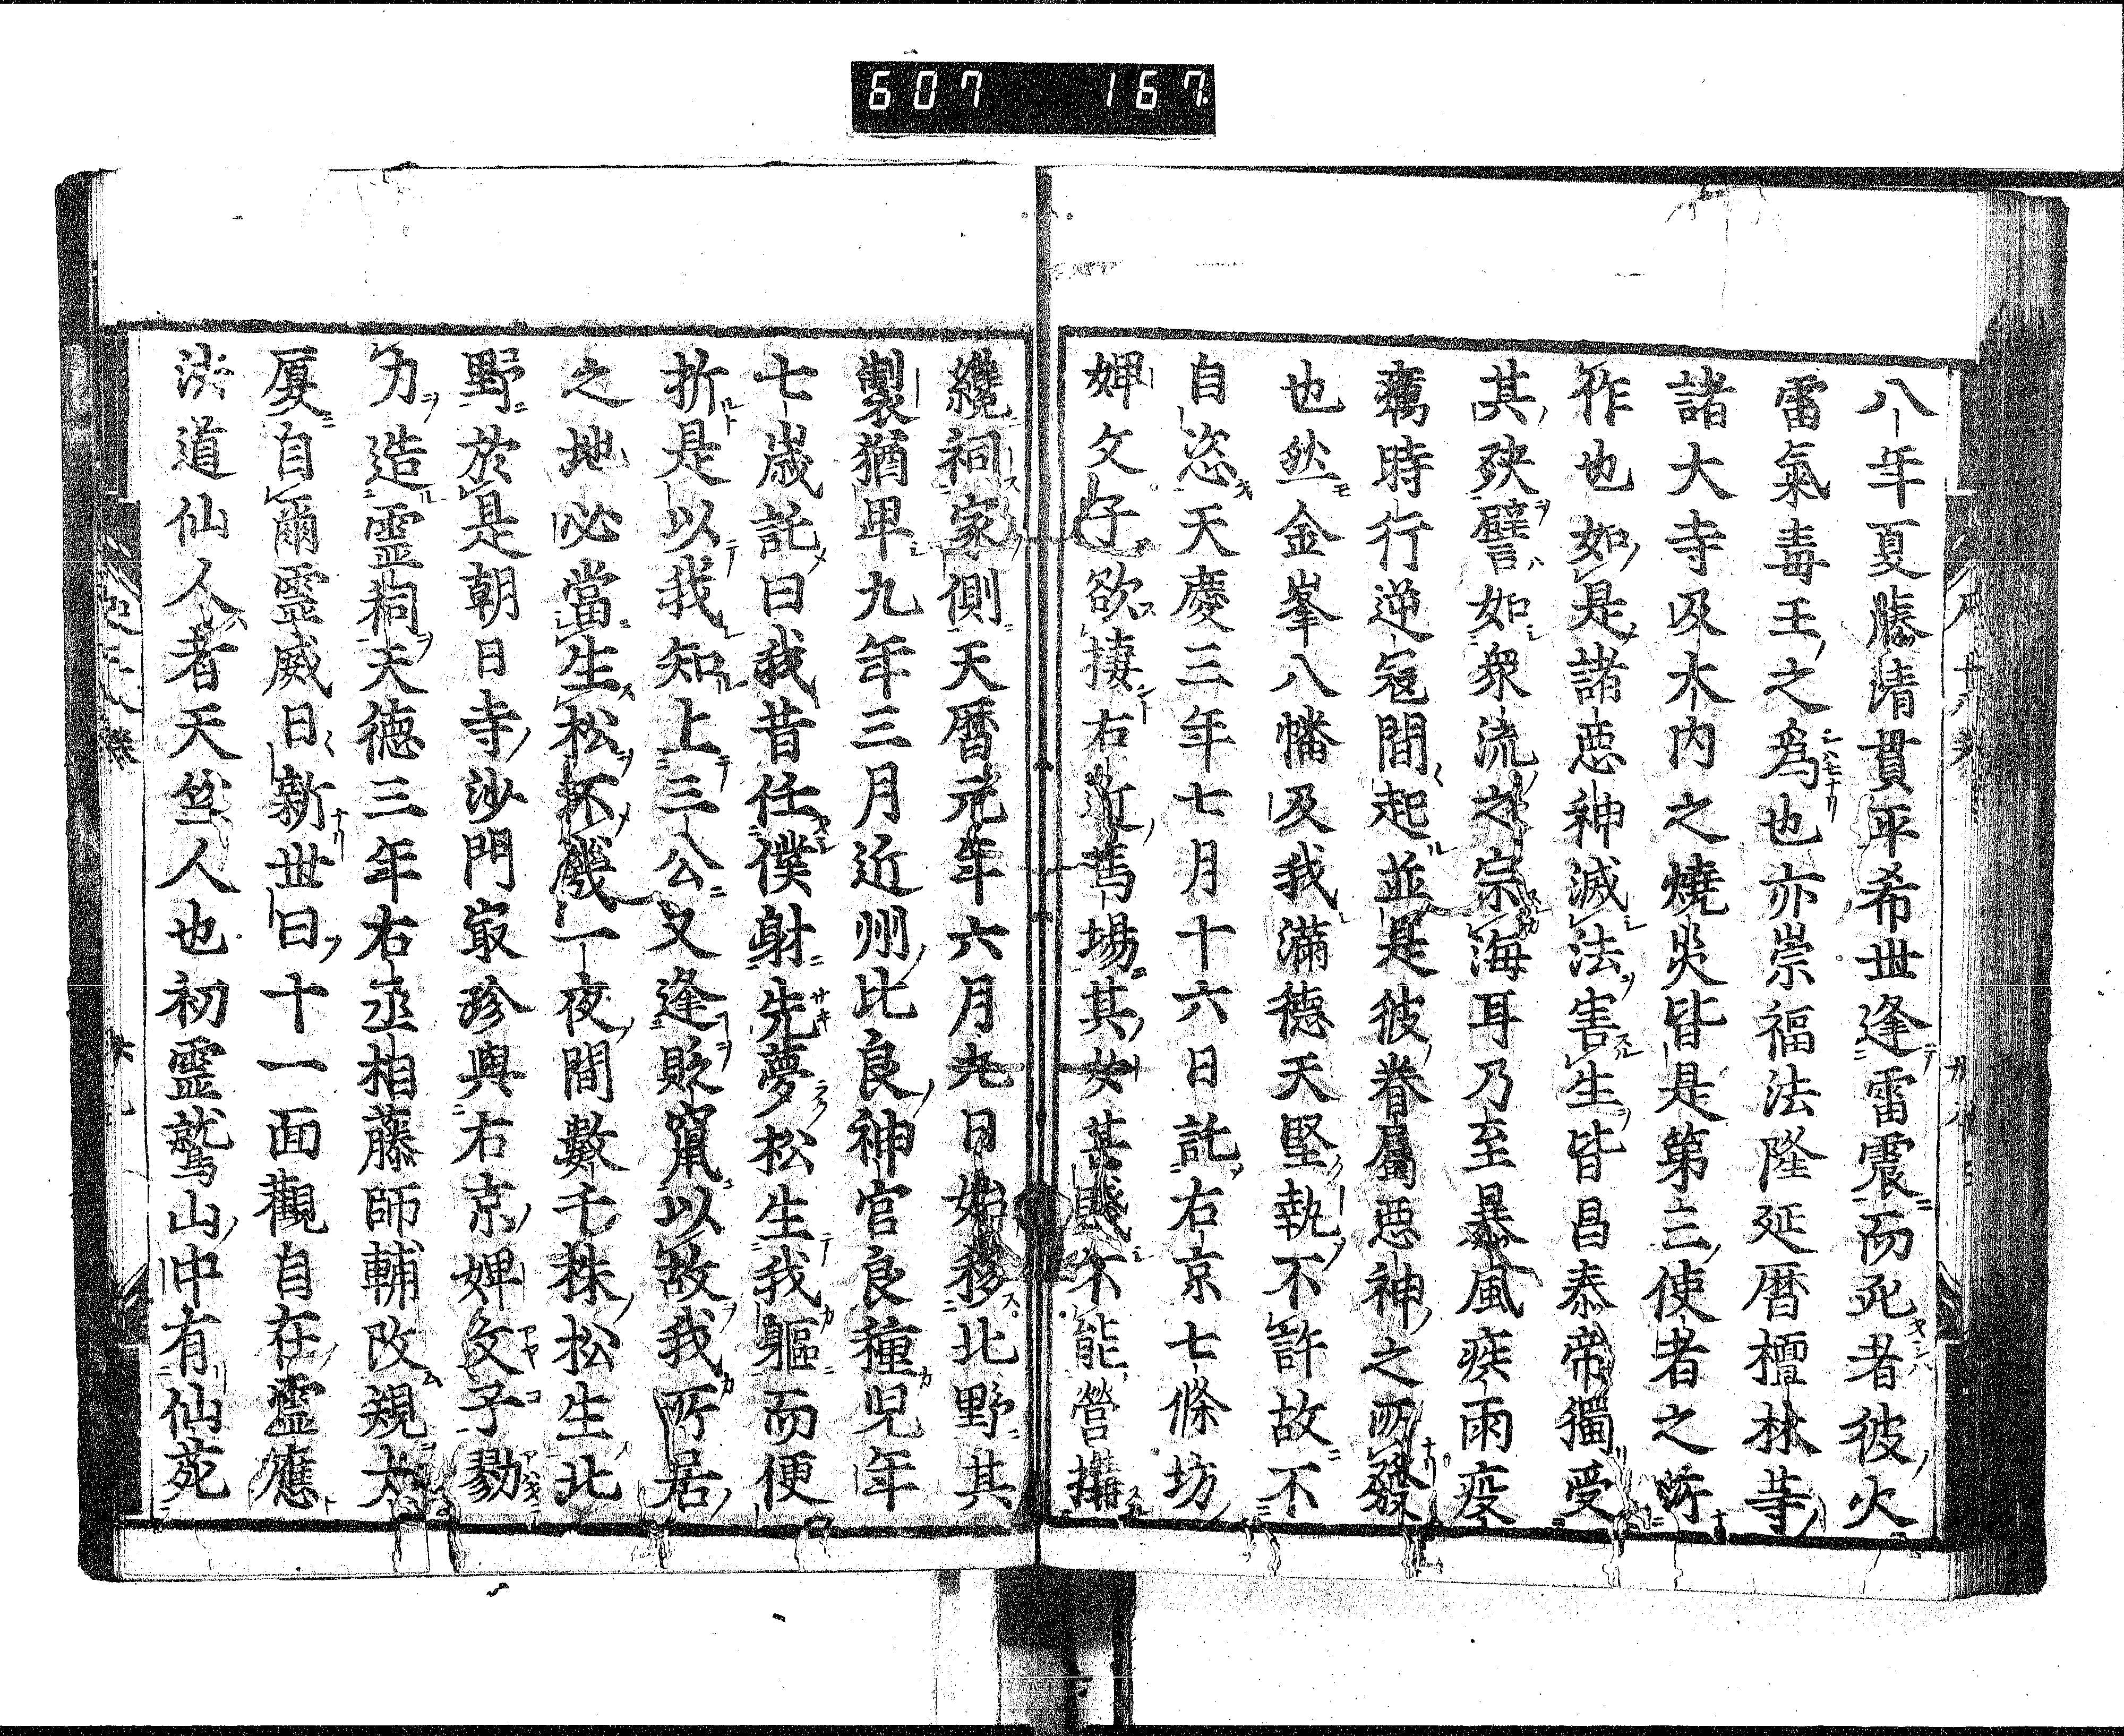 607 167
八年夏藤清貫平希世逢雷震而死者彼火
雷氣毒王之為也亦崇福法隆延暦檀林等
諸大寺及大内之燒災皆是第三使者之所
作也如是諸惡神滅法害生皆昌泰帝獨受
其殃譬如衆流之宗海耳乃至暴風疾雨疫
癘時行逆寇間起並是彼眷屬惡神之所發
也然金峯八幡及我滿德天堅執不許故不
自恣天慶三年七月十六日託右京七條坊
婢文子欲捿右近馬場其女甚賤不能營搆
纔祠家側天暦元年六月九日始移北野其
製猶卑九年三月近州比良神官良種兒年
七歲託曰我昔任僕射先夢松生我軀而便
折是以我知上三公又逢貶竄以故我所居
之地必當生松不幾一夜間數千株松生北
野於是朝日寺沙門最珍與右京婢文子勠
力造靈祠天德三年右丞相藤師輔改規大
厦自爾靈威日新世曰十一面觀自在靈應
法道仙人者天竺人也初靈鷲山中有仙苑